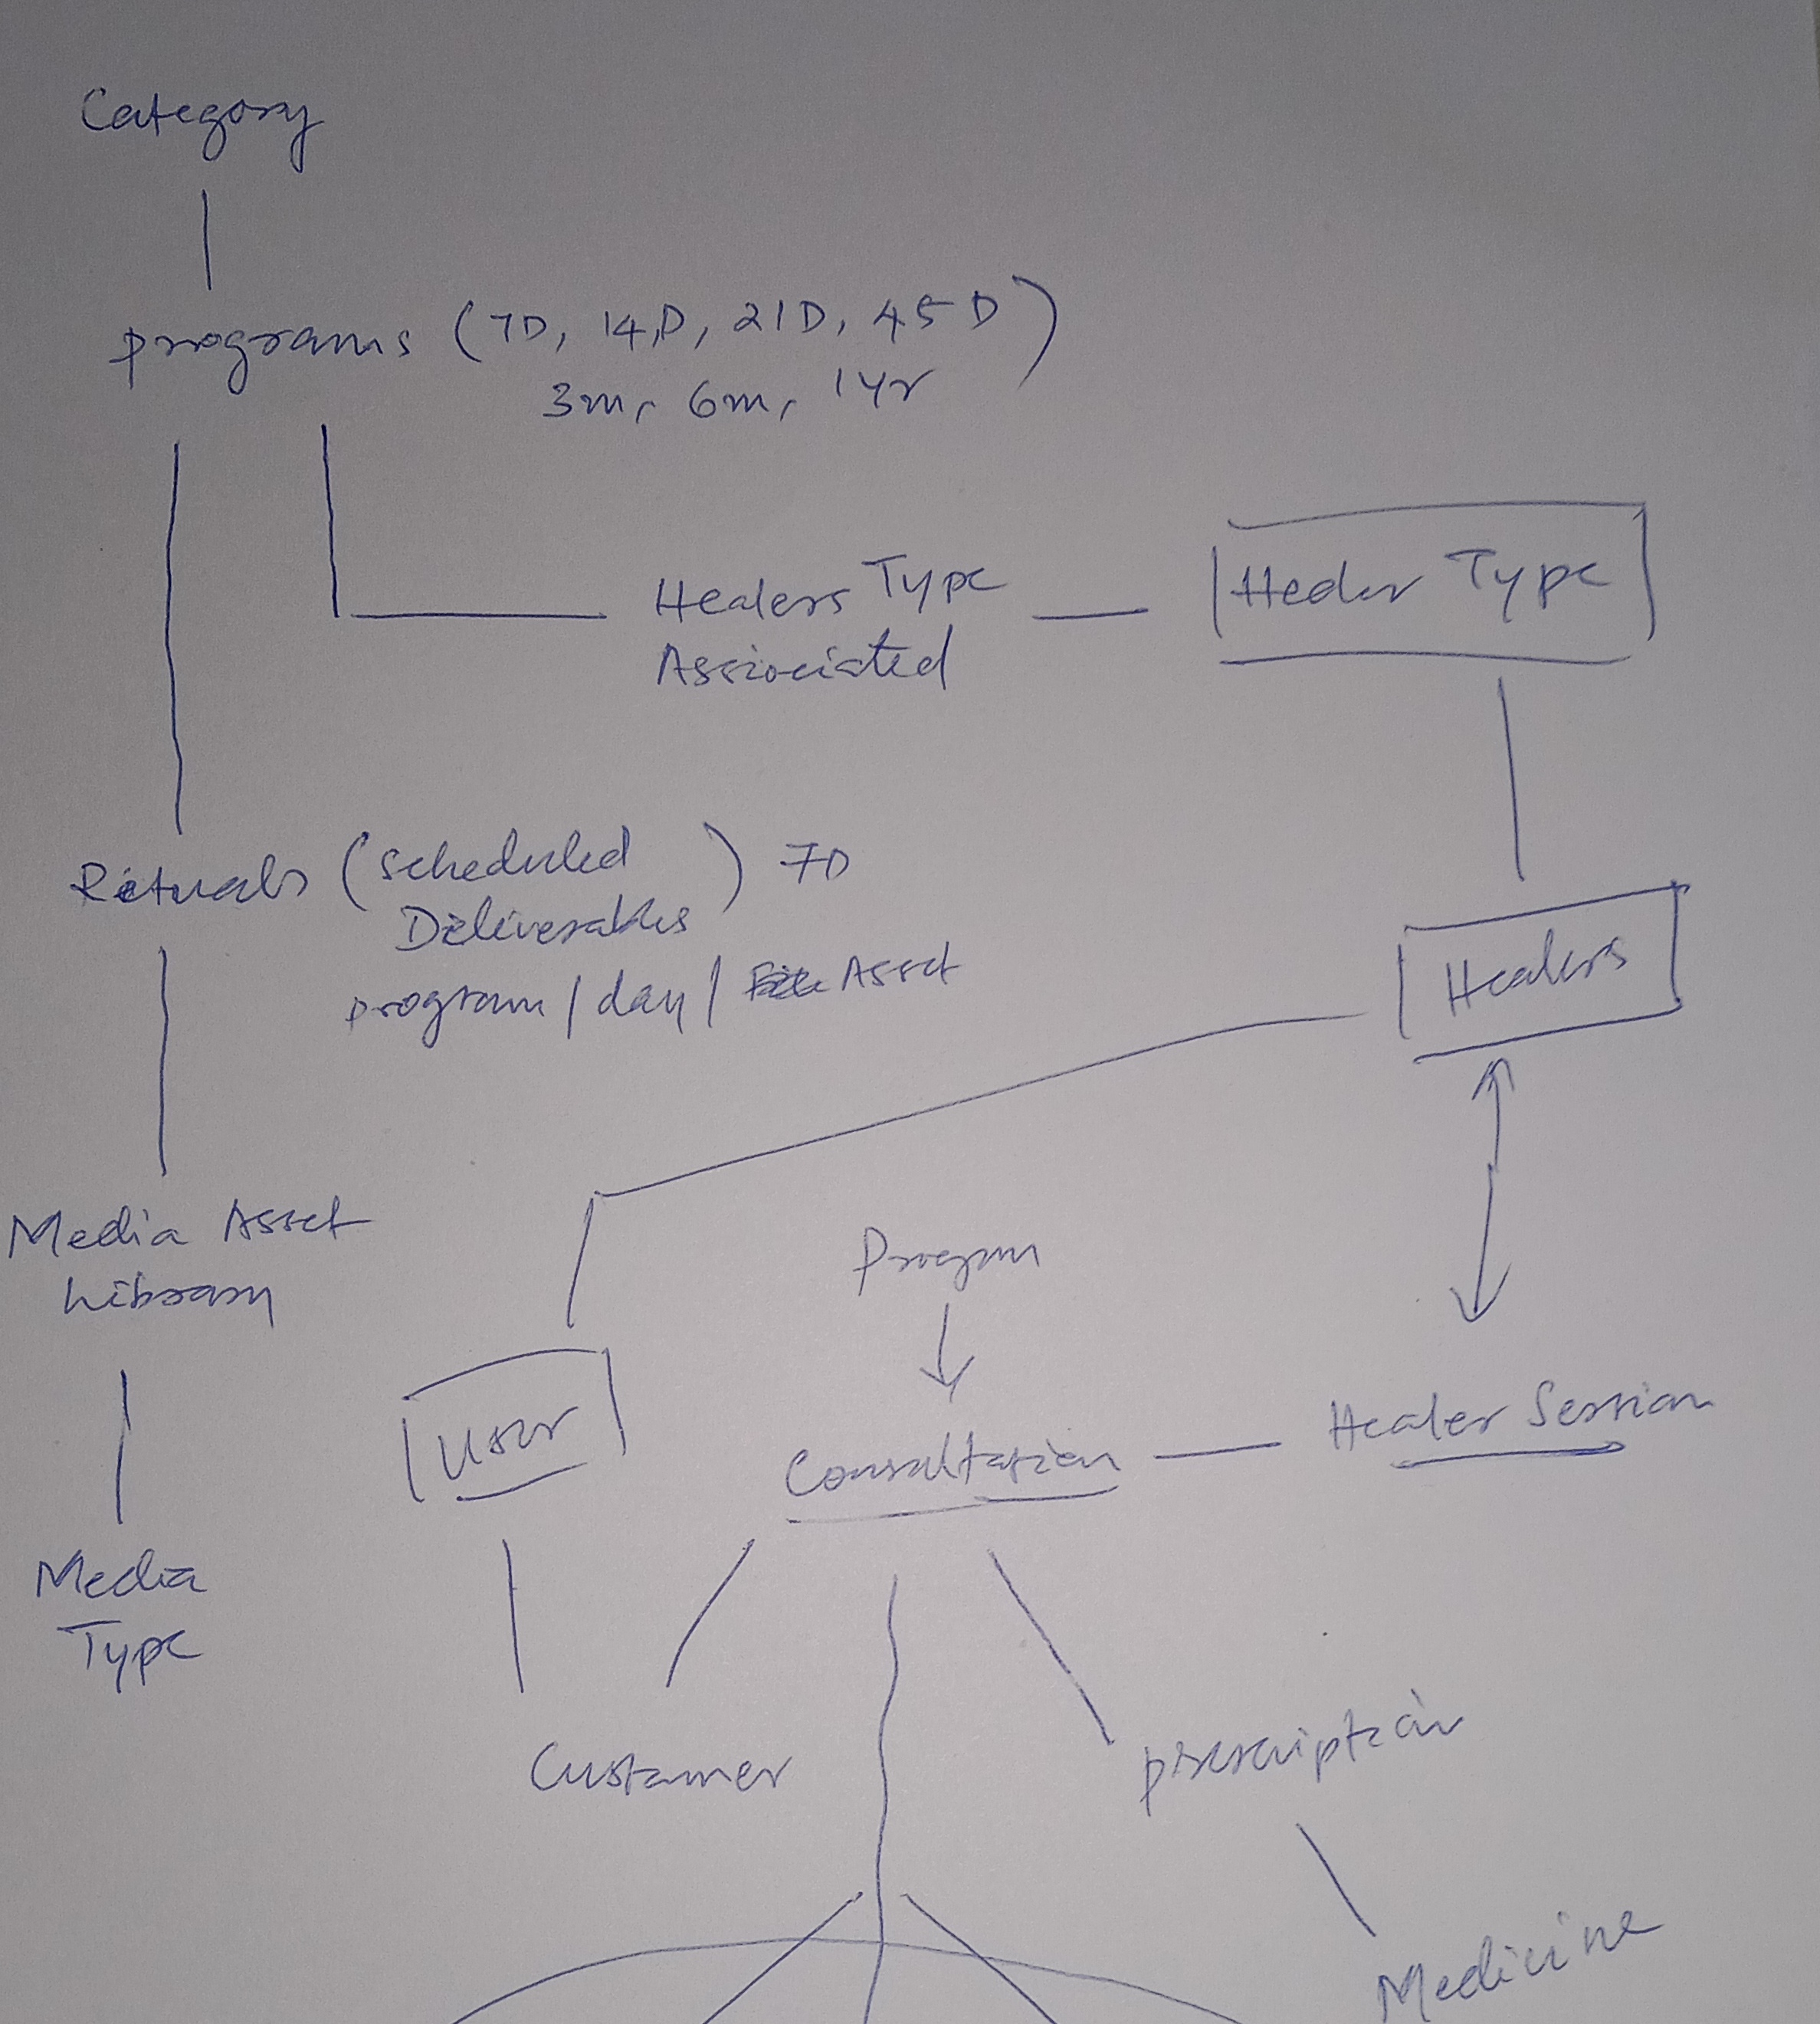 Category
programs (7D, 14D, 21D, 45D)
3m, 6m, 1yr
Healers Type
Associated
Healer Type
Rituals (scheduled
Deliverables) 7D
program / day / Asset
Healers
Media Asset
Library
Program
User
Consultation
Healer Session
Media
Type
Customer
prescription
Medicine